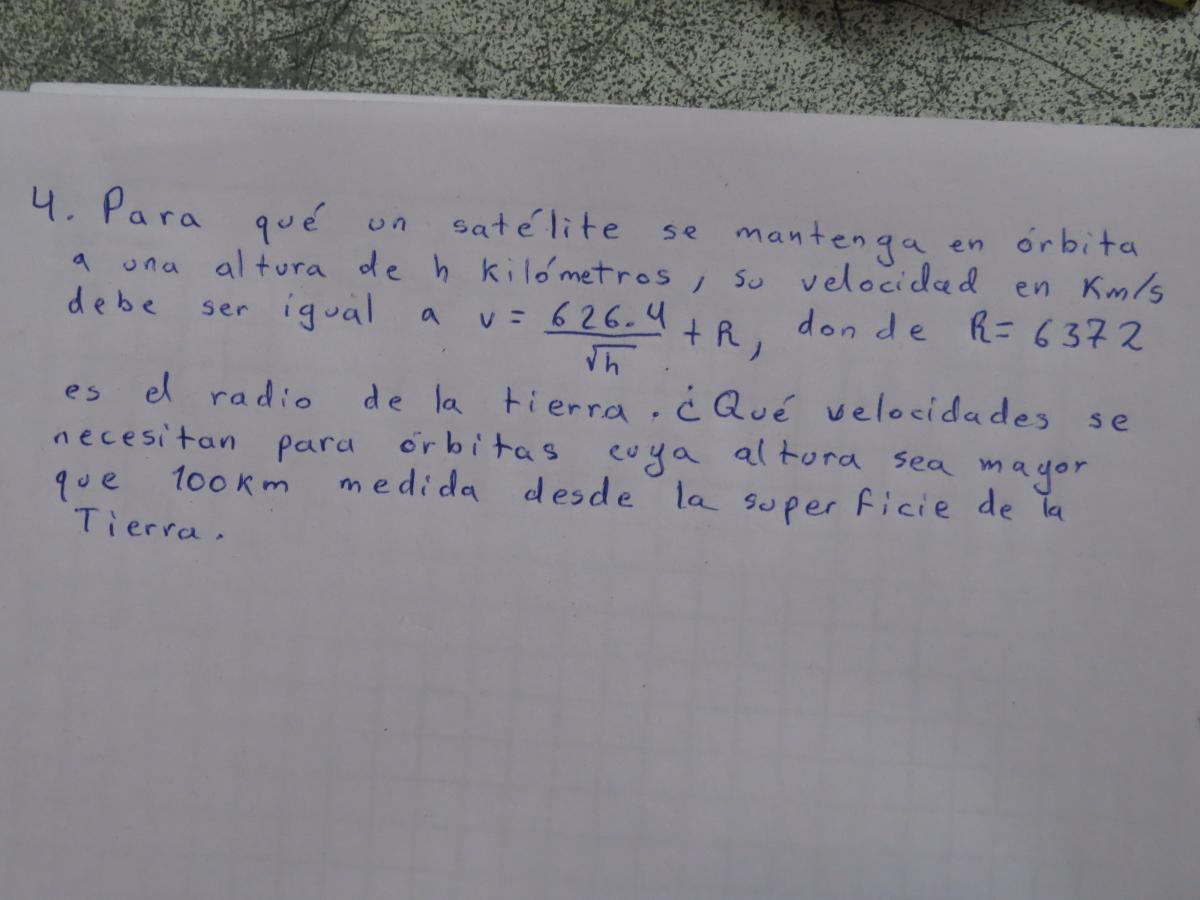 4. Para qué un satélite se mantenga en órbita
a una altura de h kilómetros, su velocidad en Km/s
debe ser igual a v = 626.4/√h + R, donde R= 6372
es el radio de la tierra. ¿Qué velocidades se
necesitan para órbitas cuya altura sea mayor
que 100km medida desde la superficie de la
Tierra.